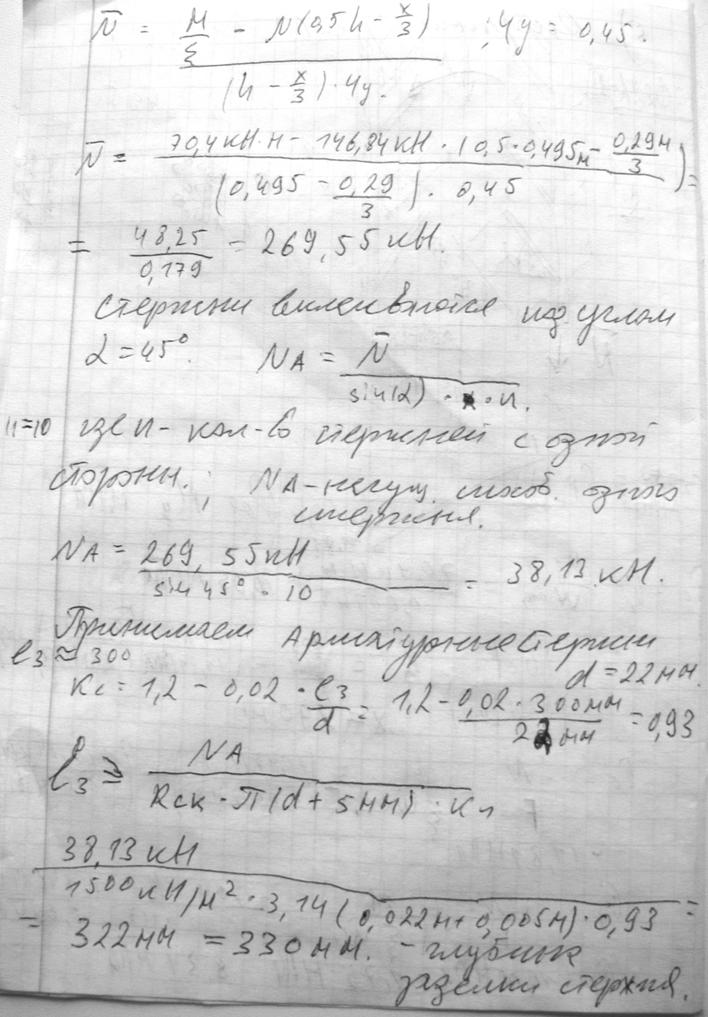 N̄ = (M/ξ − N(0,5h − x/3)) / ((h − x/3)·Ч у.) ; Ч у = 0,45.
N̄ = (70,4 кН·м − 146,84 кН · (0,5·0,495м − 0,29м/3)) / ((0,495 − 0,29/3) · 0,45) =
= 48,25/0,179 = 269,55 кН.
Стержни вклеиваются под углом
α = 45°. NА = N̄ / (sin(α) · n.
n=10 где n - кол-во стержней с одной
стороны. ; NА - несущ. способ. одного
стержня.
NА = 269,55 кН / (sin 45° · 10) = 38,13 кН.
Принимаем Арматурные стержни
lз ≈ 300 d = 22 мм.
Kс = 1,2 − 0,02 · lз/d = 1,2 − 0,02 · 300мм / 22 мм = 0,93
lз ≥ NА / (Rск · П(d + 5мм) · Kс
38,13 кН / (1500 кН/м² · 3,14 (0,022м + 0,005м) · 0,93 =
= 322мм = 330мм. - глубина
заделки стержня.